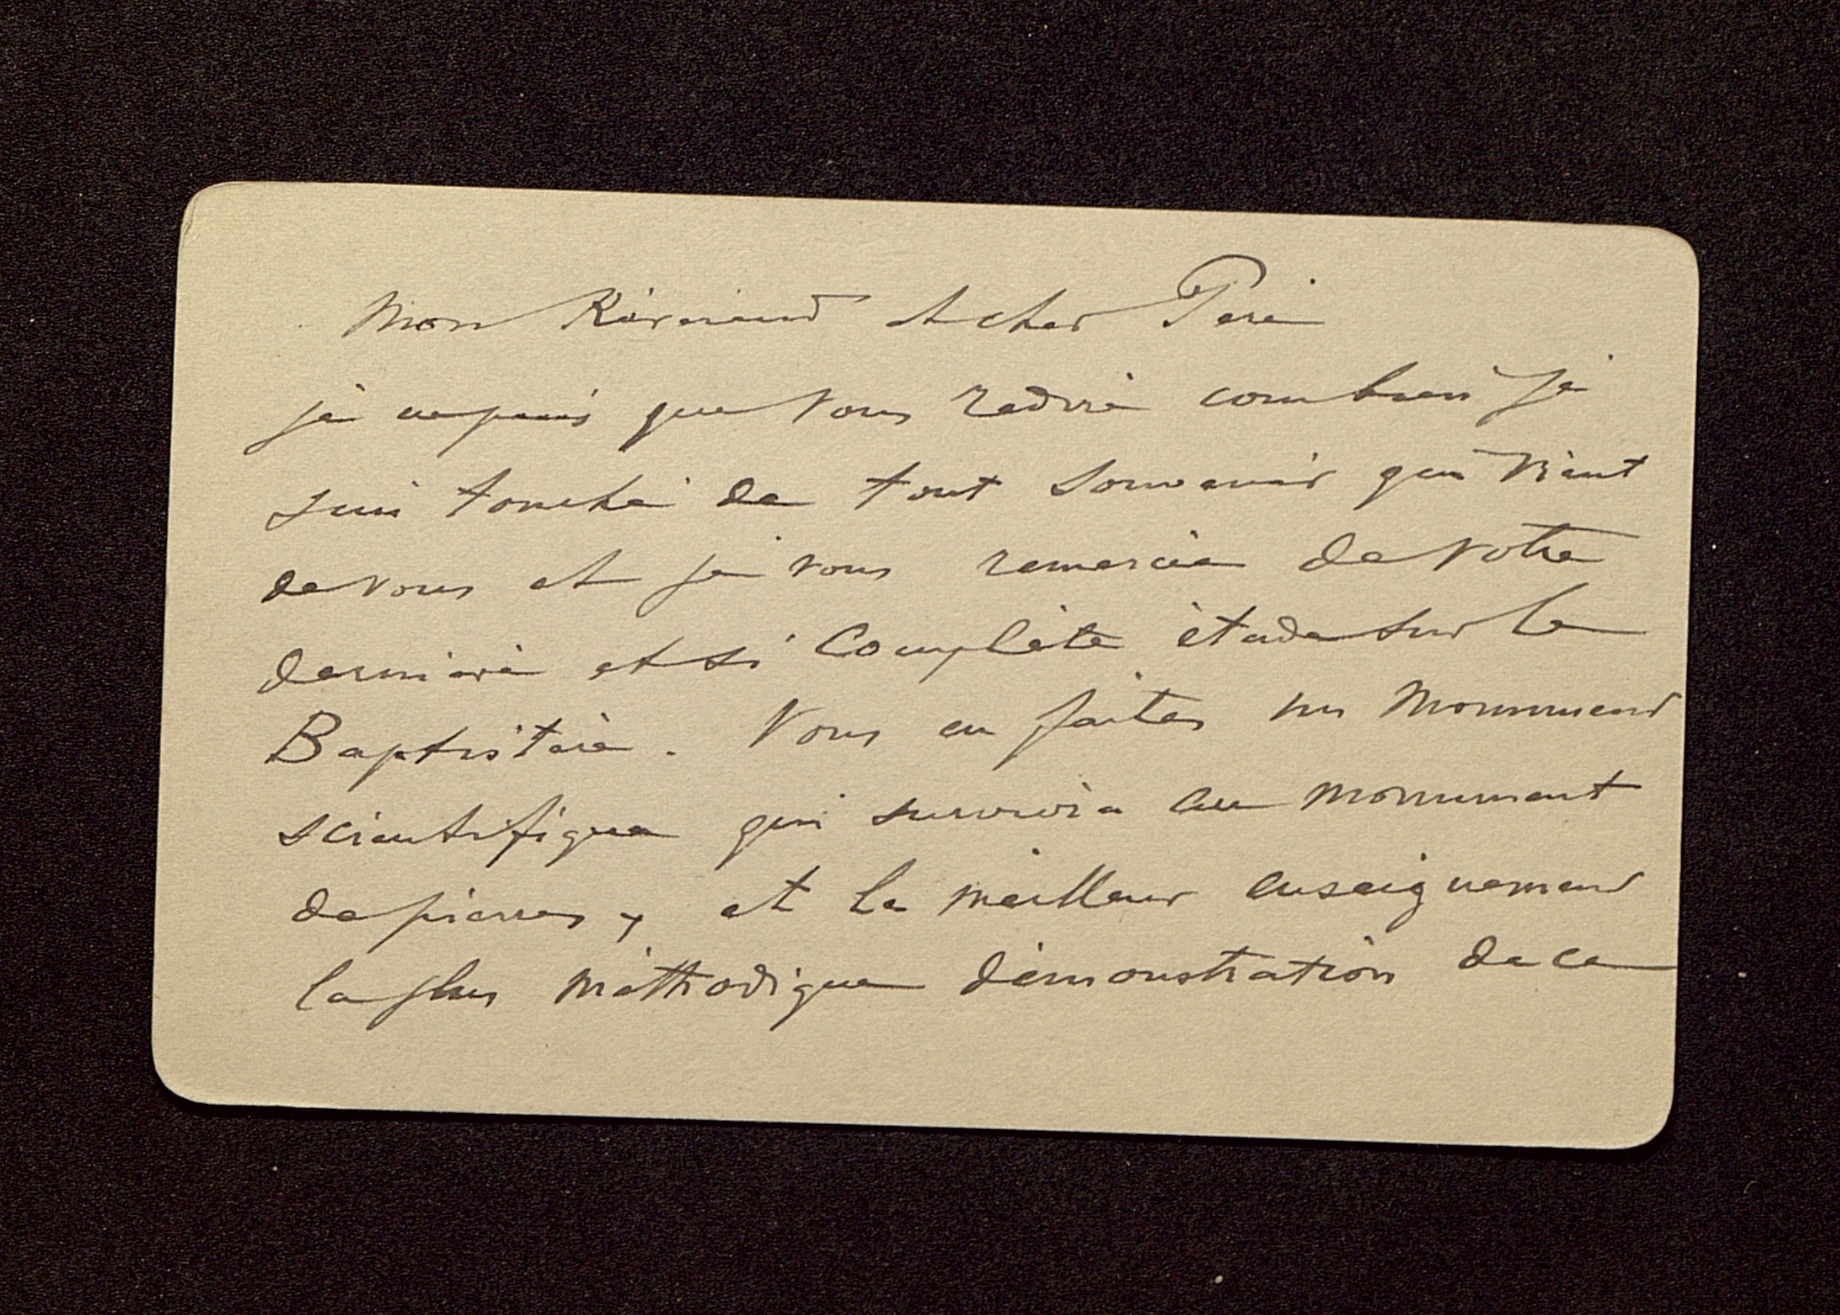 Mon Révérend et cher Père
je ne puis que vous redire combien je
suis touché de tout souvenir qui vient
de vous et je vous remercie de votre
dernière et si complète étude sur le
Baptistère. Vous en faites un monument
scientifique qui survivra au monument
de pierres, et le meilleur enseignement
la plus méthodique démonstration de ce